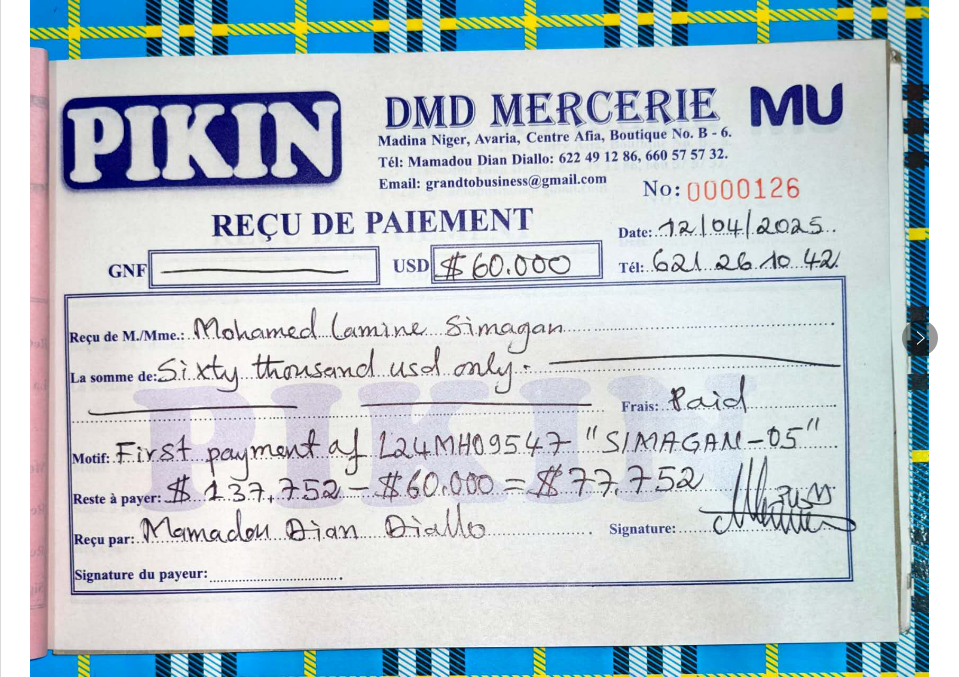 PIKIN
DMD MERCERIE MU
Madina Niger, Avaria, Centre Afia, Boutique No. B - 6.
Tél: Mamadou Dian Diallo: 622 49 12 86, 660 57 57 32.
Email: grandtobusiness@gmail.com
No: 0000126
REÇU DE PAIEMENT
Date: 12/04/2025
GNF
USD $ 60.000
Tél: 621 26 10 42
Reçu de M./Mme.: Mohamed Lamine Simagan
La somme de: Sixty thousand usd only.
Frais: Paid
Motif: First payment of L24MH09547 "SIMAGAN-05"
Reste à payer: $ 137,752 - $60.000 = $77,752
Reçu par: Mamadou Dian Diallo Signature:
Signature du payeur:
PIKIN